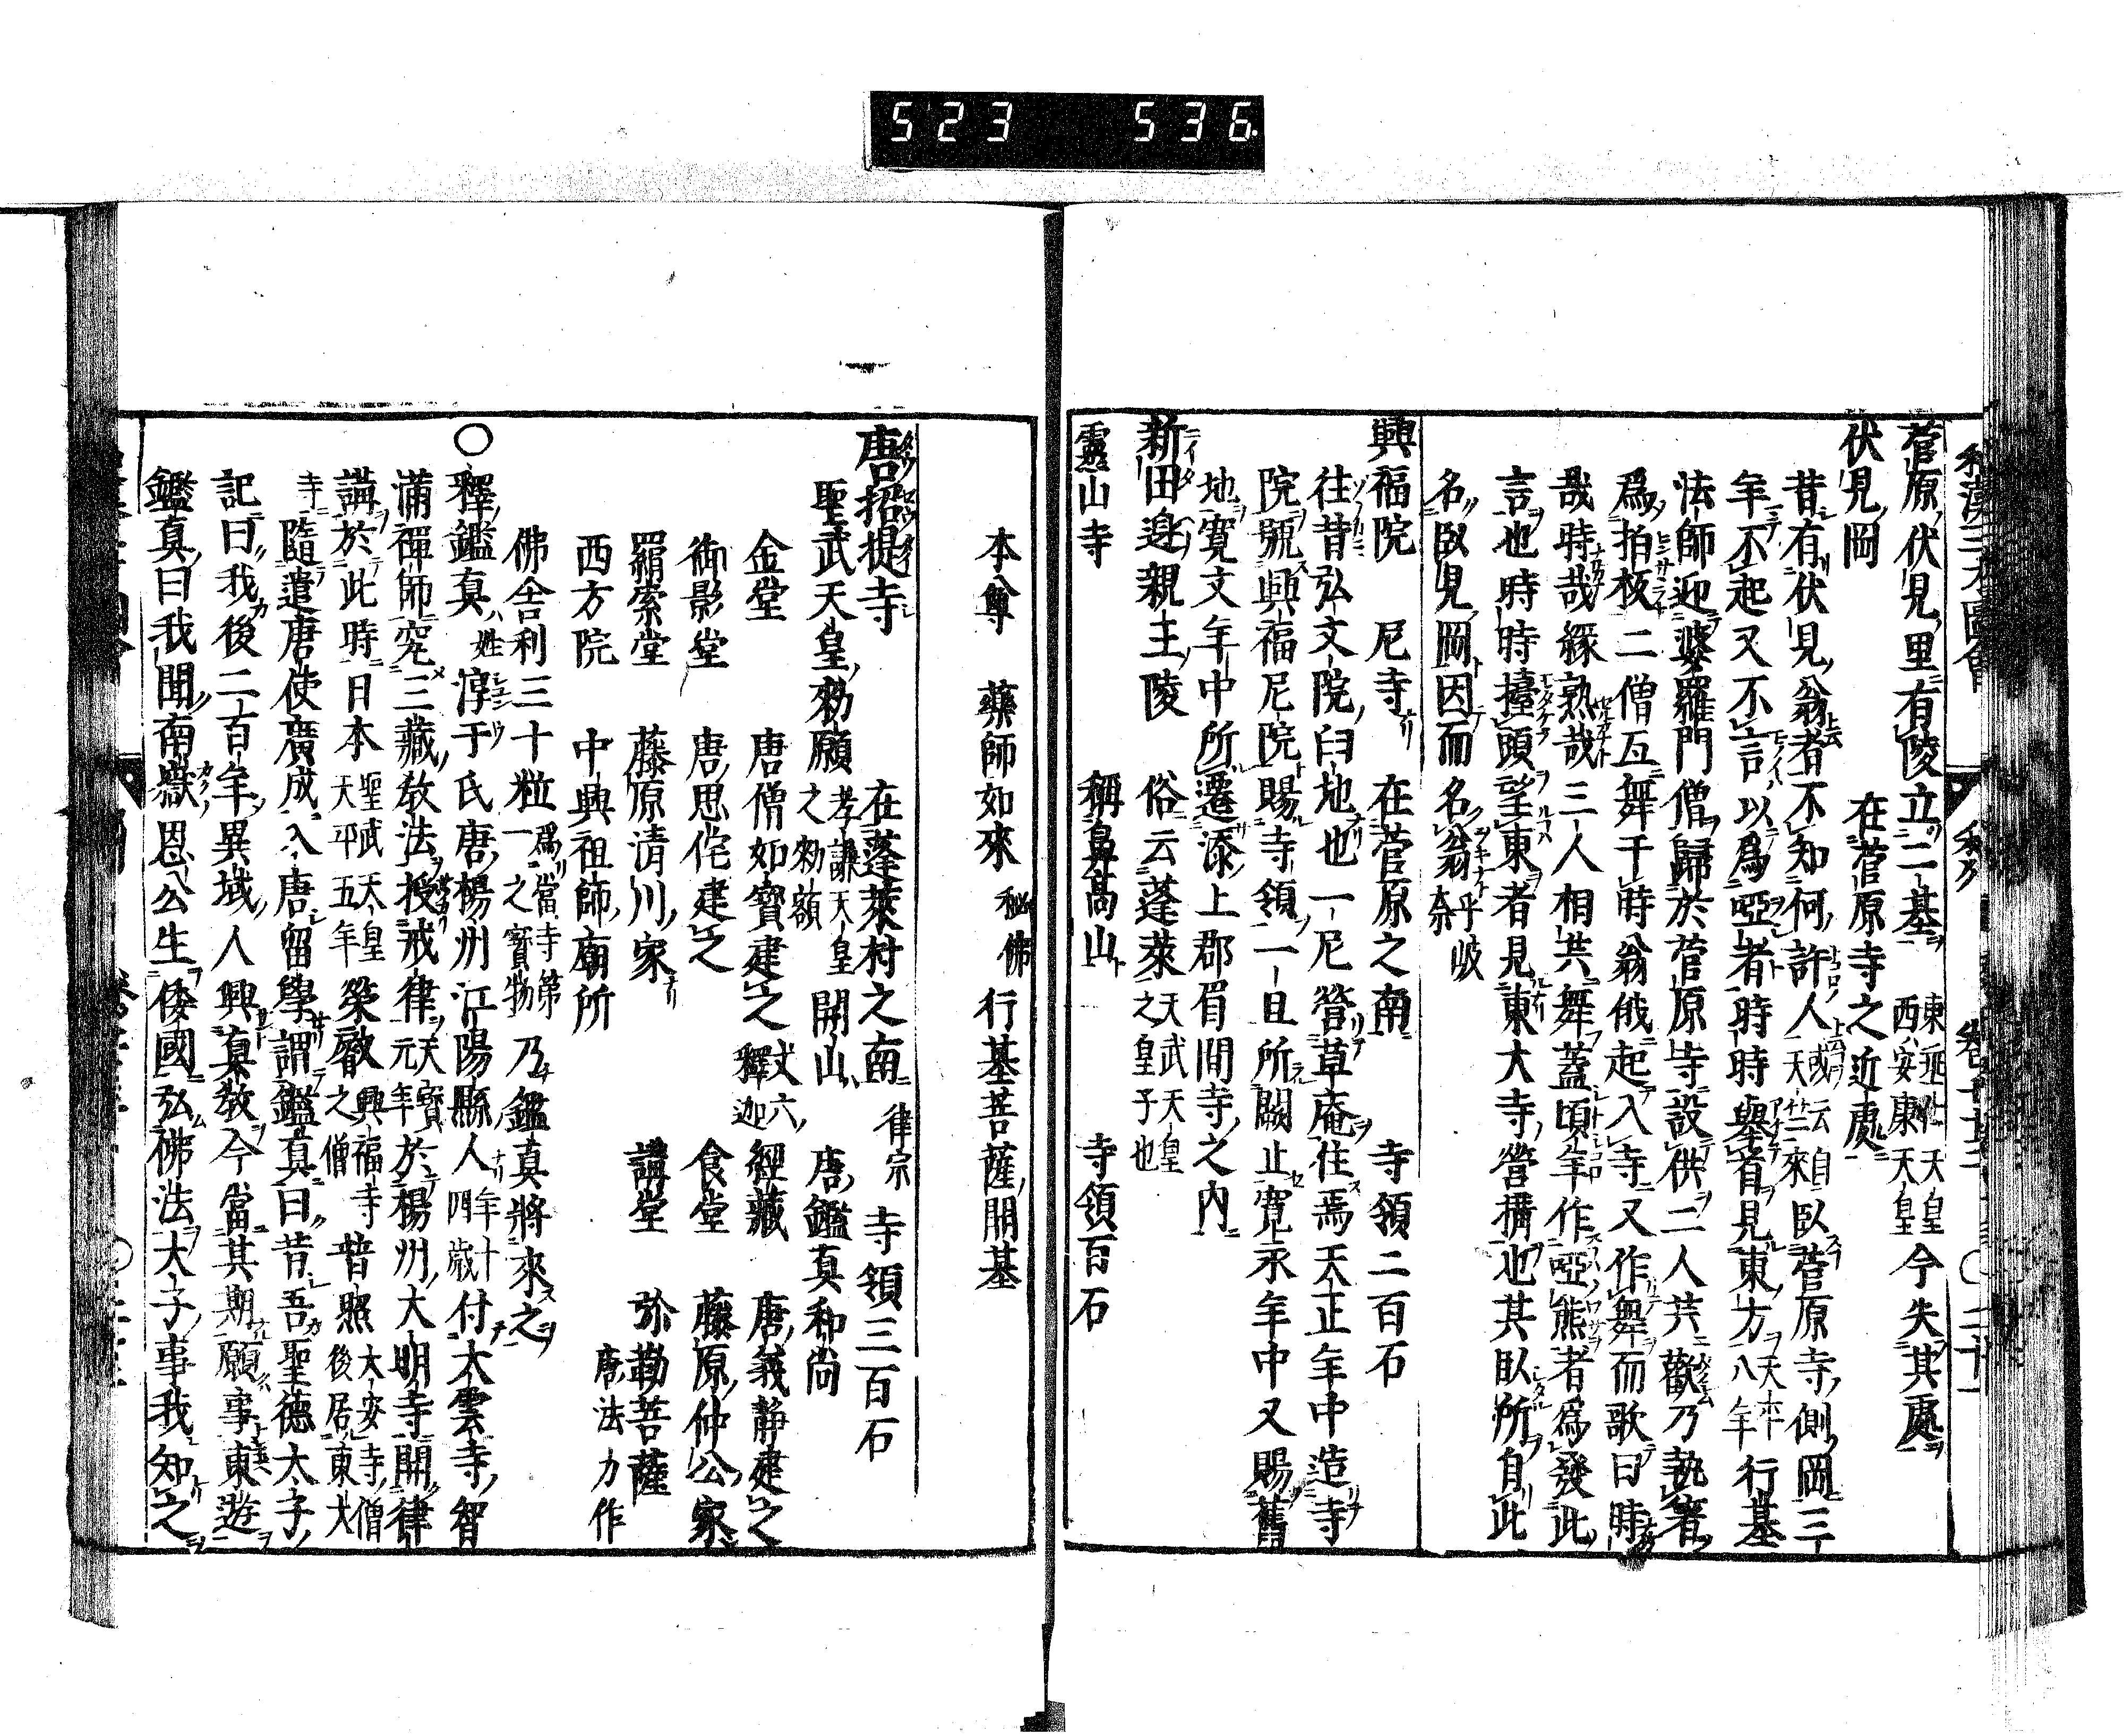 523 536
菅原伏見里有陵立二基 東垂仁天皇 西安康天皇 今失其處
伏見岡 在菅原寺之近處
昔有伏見翁者不知何許人 或云自天竺來 臥菅原寺側岡三
年不起又不言以爲啞者時時舉首見東方 天平八年 行基
法師迎婆羅門僧歸於菅原寺設供二人共歡乃執箸
爲拍板二僧互舞于時翁俄起入寺又作舞而歌曰時
哉時哉緣熟哉三人相共舞蓋頃年作啞熊者爲發此
言也時時擡頭望東者見東大寺營構也其臥所自此
名臥見岡因而名翁乎
興福院 尼寺 在菅原之南 寺領二百石
往昔弘文院臼地也一尼營草庵住焉天正年中造寺
院號興福尼院賜寺領一旦所闕止寛永年中又賜舊
地寛文年中所遷添上郡眉間寺之内
新田邉親王陵 俗云蓬萊 天武天皇之皇子也
靈山寺 稱鼻高山 寺領百石
本尊 藥師如來 秘佛 行基菩薩開基
唐招提寺 在蓬萊村之南 律宗 寺領三百石
聖武天皇勅願 孝謙天皇之勅額 開山 唐鑑真和尚
金堂 唐僧如寶建之 丈六釋迦 經藏 唐義静建之
御影堂 唐思侘建之 食堂 藤原仲公家
羂索堂 藤原清川家 講堂 弥勒菩薩 唐法力作
西方院 中興祖師廟所
佛舍利三十粒 爲當寺第一之寳物 乃鑑真將來之
○釋鑑真 姓淳于氏唐楊州江陽縣人 年十四歳 付大雲寺智
滿禪師究三藏教法授戒律 天寳元年 於楊州大明寺開律
講於此時日本 聖武天皇天平五年 榮叡 興福寺之僧 普照 大安寺僧後居東大
寺 隨遣唐使廣成入唐留學謂鑑真曰昔吾聖德太子
記曰我後二百年異域人興真教今當其期願事東遊
鑑真曰我聞南嶽思公生倭國弘佛法太子事我知之